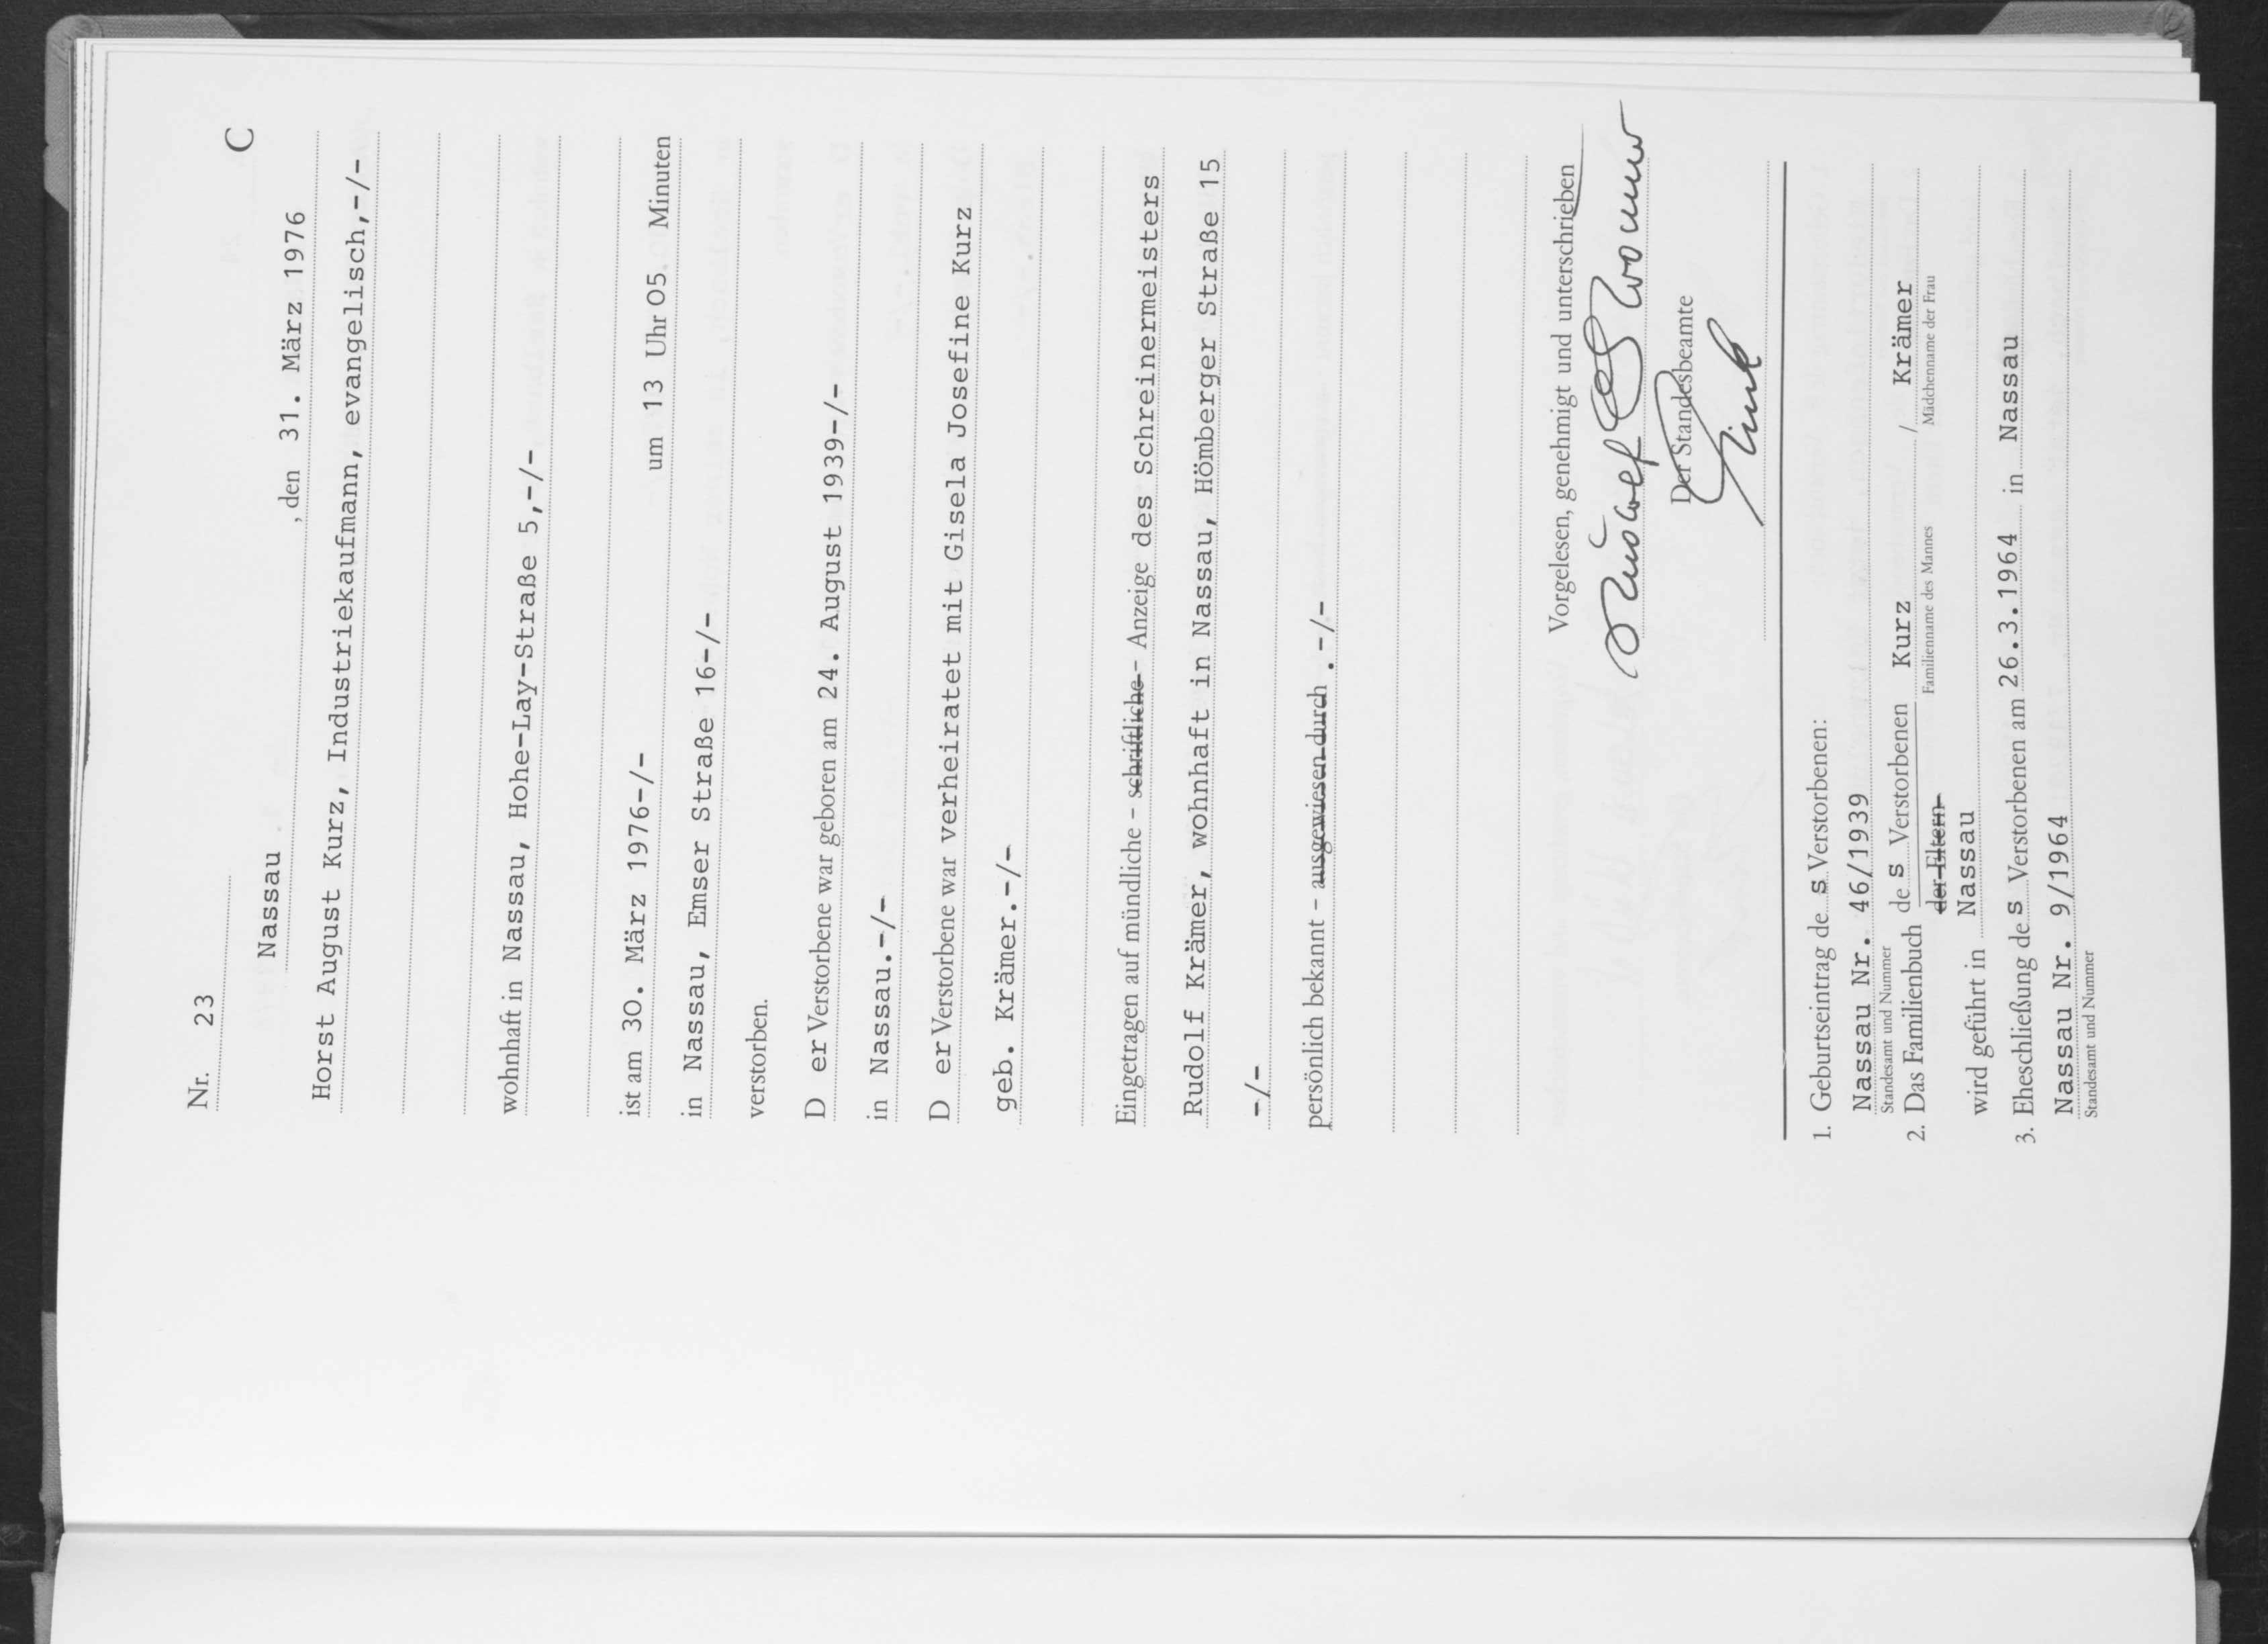 Nr. 23
C
Nassau, den 31. März 1976
Horst August Kurz, Industriekaufmann, evangelisch,-/-
wohnhaft in Nassau, Hohe-Lay-Straße 5,-/-
ist am 30. März 1976-/- um 13 Uhr 05 Minuten
in Nassau, Emser Straße 16-/-
verstorben.
D er Verstorbene war geboren am 24. August 1939-/-
in Nassau.-/-
D er Verstorbene war verheiratet mit Gisela Josefine Kurz
geb. Krämer.-/-
Eingetragen auf mündliche - schriftliche - Anzeige des Schreinermeisters
Rudolf Krämer, wohnhaft in Nassau, Hömberger Straße 15
-/-
persönlich bekannt - ausgewiesen durch . -/-
Vorgelesen, genehmigt und unterschrieben
Rudolf Krämer
Der Standesbeamte
1. Geburtseintrag de s Verstorbenen:
Nassau Nr. 46/1939
Standesamt und Nummer
2. Das Familienbuch de s Verstorbenen Kurz / Krämer
der Eltern Familienname des Mannes Mädchenname der Frau
wird geführt in Nassau
3. Eheschließung de s Verstorbenen am 26.3.1964 in Nassau
Nassau Nr. 9/1964
Standesamt und Nummer